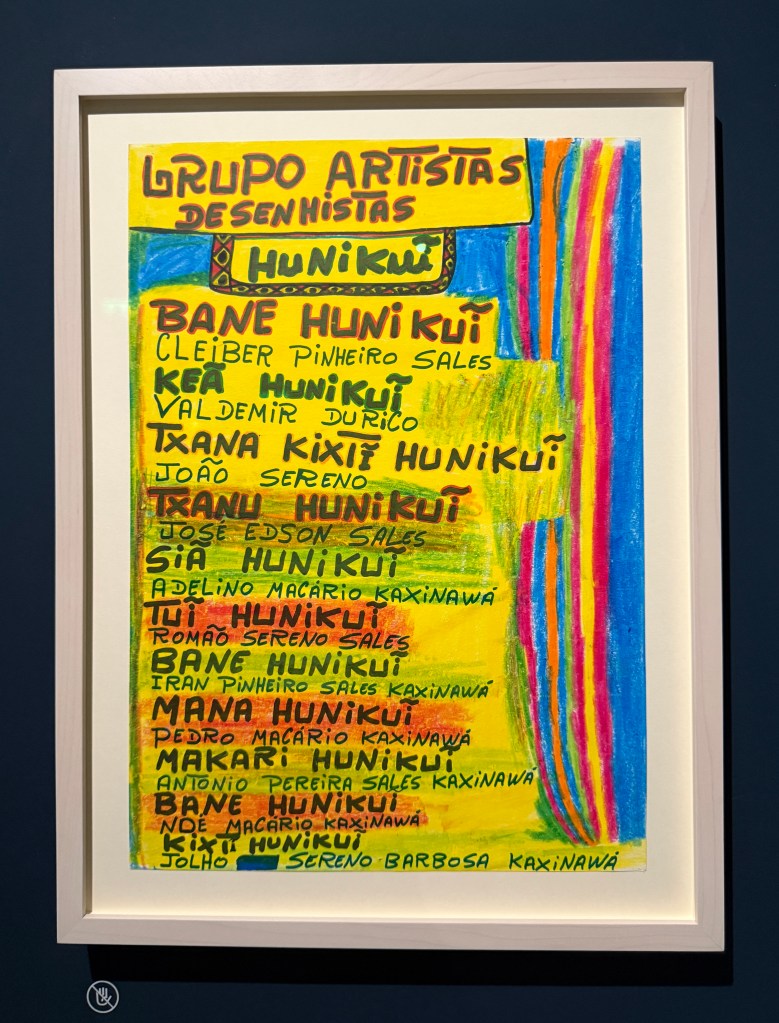 GRUPO ARTISTAS
DESENHISTAS
HUNIKUĨ
BANE HUNIKUĨ
CLEIBER PINHEIRO SALES
KEÃ HUNIKUĨ
VALDEMIR DURICO
TXANA KIXTĨ HUNIKUĨ
JOÃO SERENO
TXANU HUNIKUĨ
JOSÉ EDSON SALES
SIÃ HUNIKUĨ
ADELINO MACÁRIO KAXINAWÁ
TUĨ HUNIKUĨ
ROMÃO SERENO SALES
BANE HUNIKUĨ
IRAN PINHEIRO SALES KAXINAWÁ
MANA HUNIKUĨ
PEDRO MACÁRIO KAXINAWÁ
MAKARI HUNIKUĨ
ANTONIO PEREIRA SALES KAXINAWÁ
BANE HUNIKUĨ
NDÉ MACÁRIO KAXINAWÁ
HUNIKUĨ
JOLHO SERENO BARBOSA KAXINAWÁ